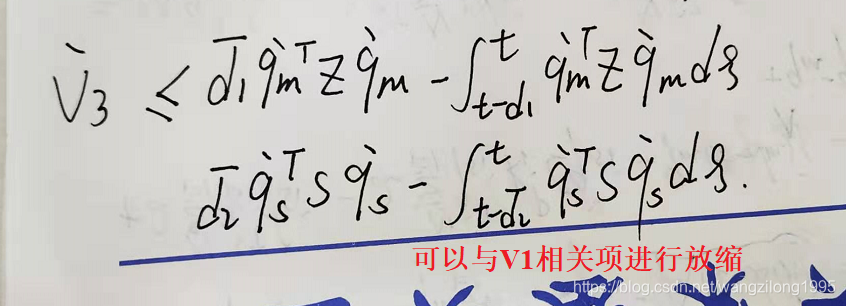 V̇₃ ≤ d̄₁q̇ₘᵀZq̇ₘ - ∫ₜ₋d₁ᵗ q̇ₘᵀZq̇ₘdξ
d̄₂q̇ₛᵀSq̇ₛ - ∫ₜ₋d̄₂ᵗ q̇ₛᵀSq̇ₛdξ.
可以与V1相关项进行放缩
https://blog.csdn.net/wangzilong1995